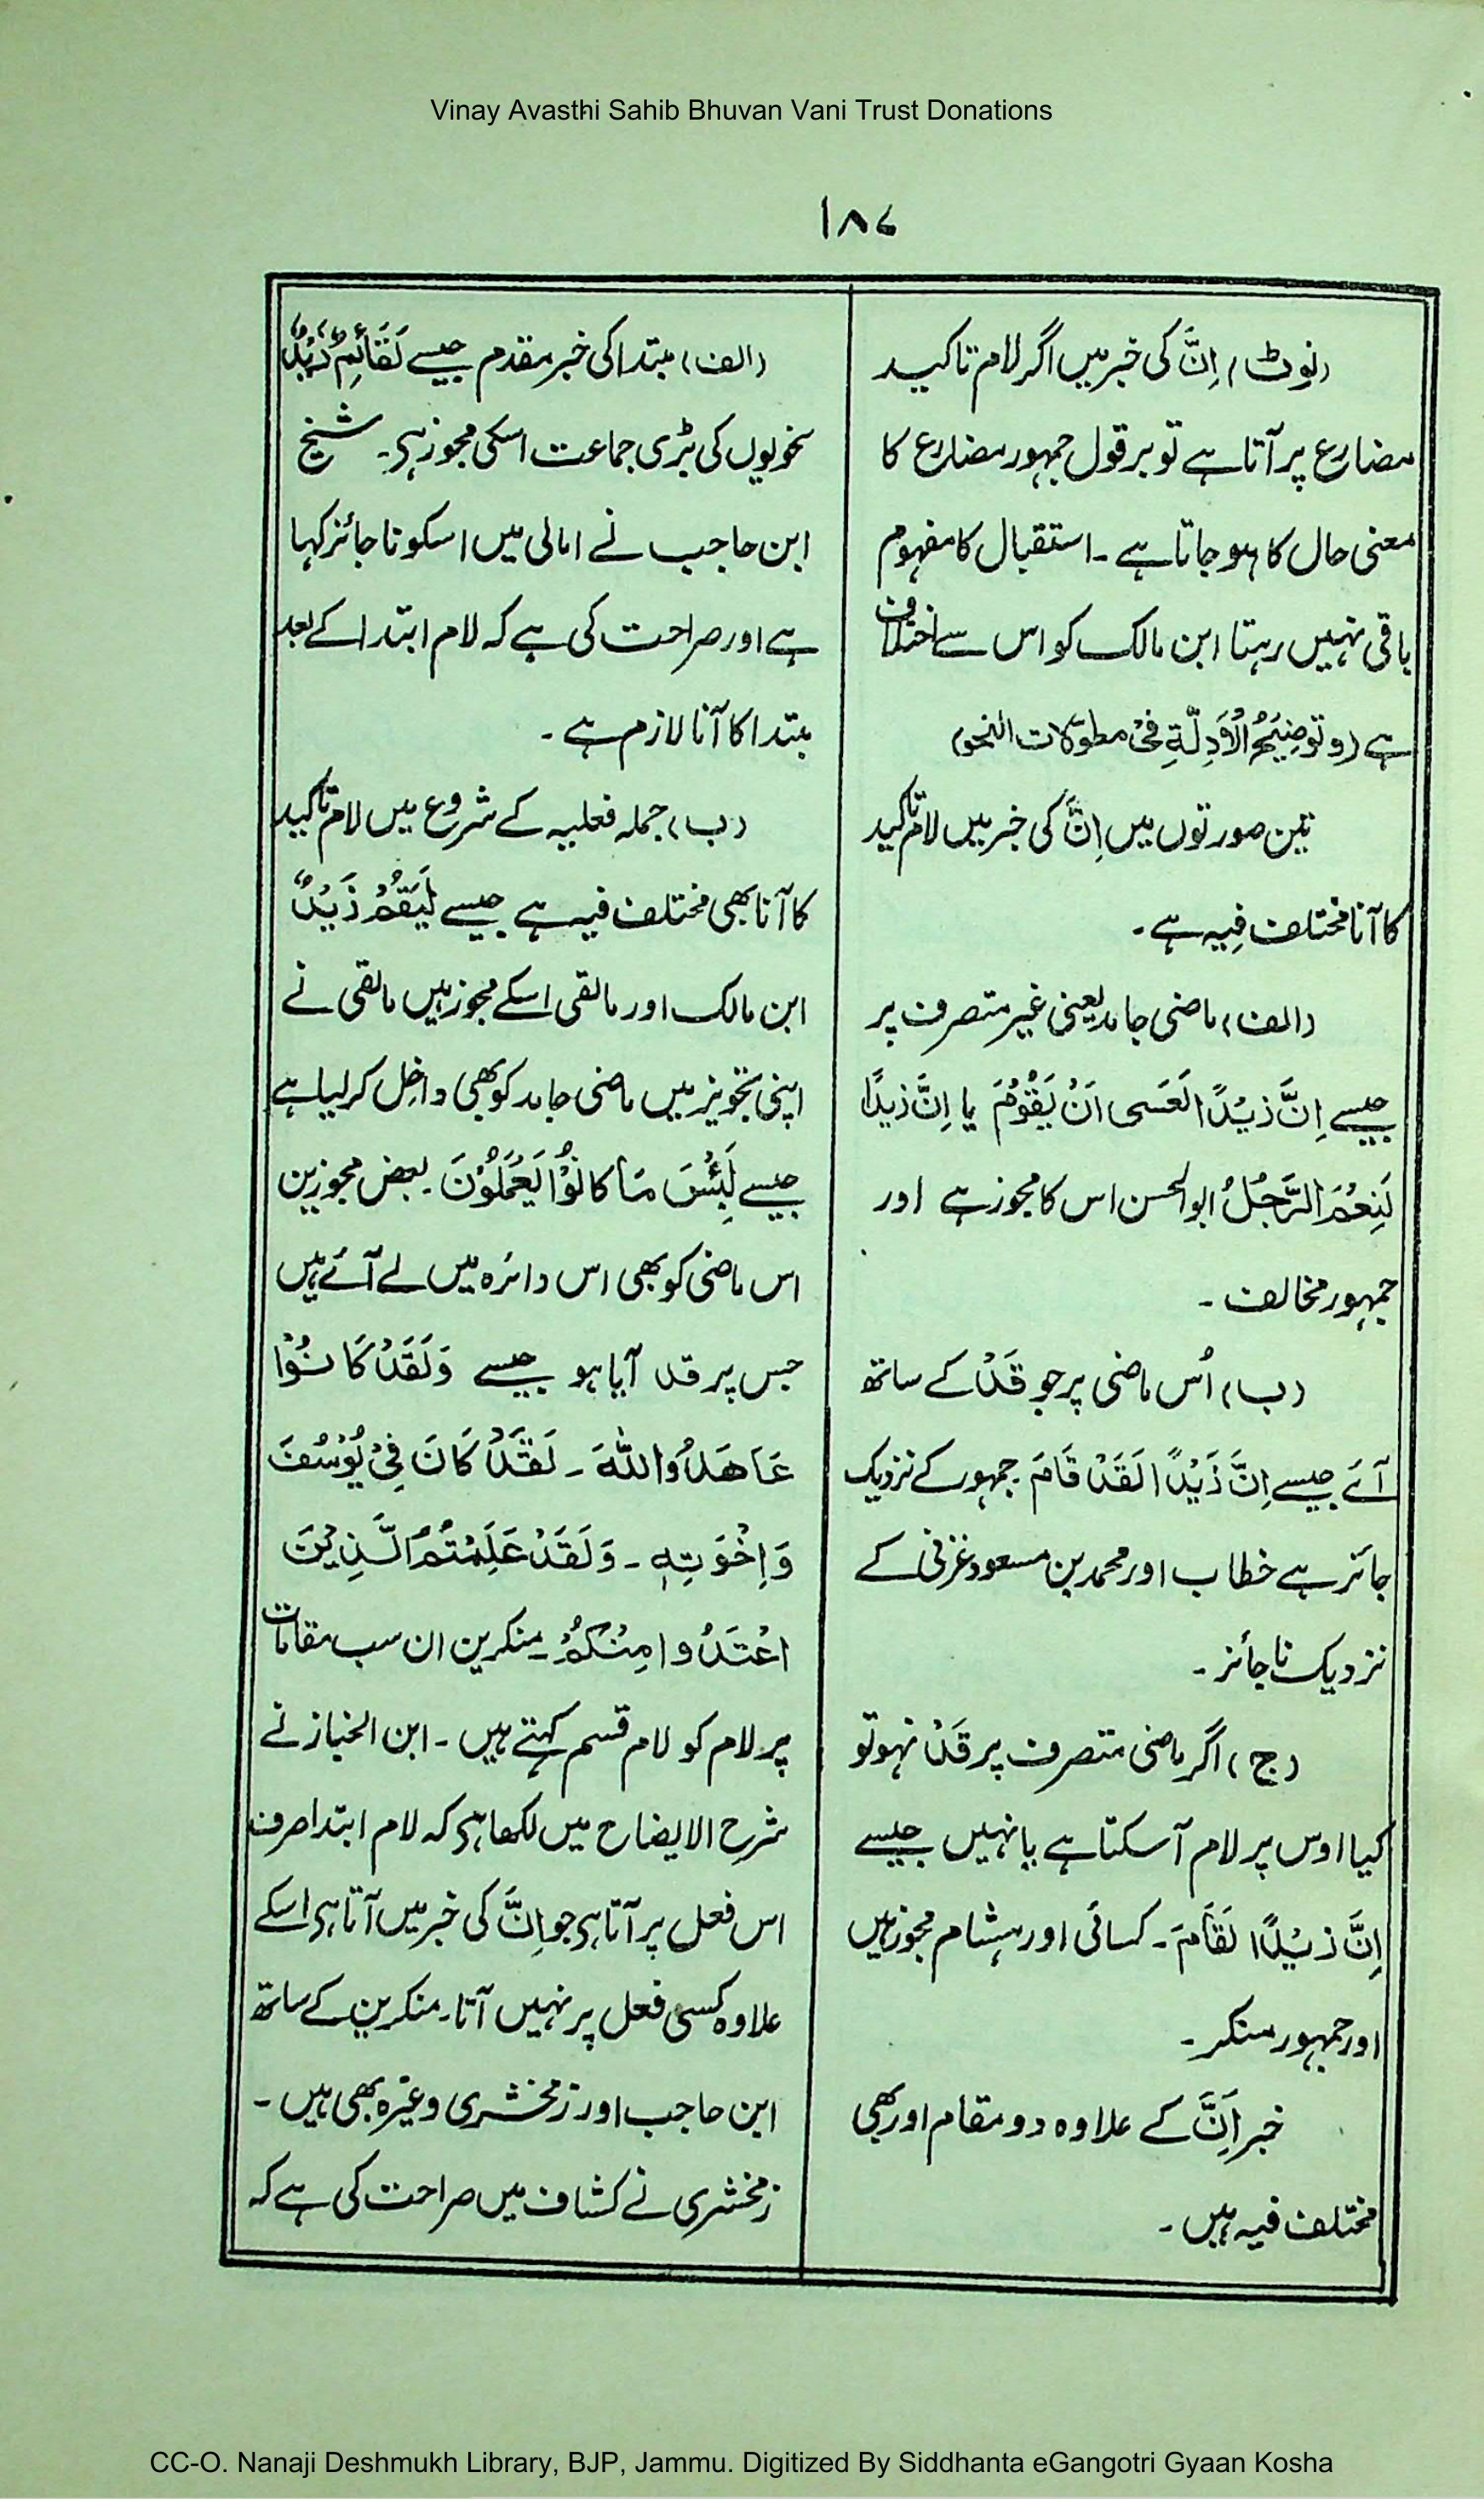 Vinay Avasthi Sahib Bhuvan Vani Trust Donations
۱۸۷
(نوٹ) اِنَّ کی خبر میں اگر لام تاکید
مضارع پر آتا ہے تو بر قول جمہور مضارع کا
معنی حال کا ہو جاتا ہے ۔ استقبال کا مفہوم
باقی نہیں رہتا ابن مالک کو اس سے اختلاف
ہے (وتوضِیحُ الْاَدِلَّةِ فِیْ مطوّلات النحو)
تین صورتوں میں اِنَّ کی خبر میں لام تاکید
کا آنا مختلف فِیہ ہے ۔
(الف) ماضی جامد یعنی غیر متصرف پر
جیسے اِنَّ زیْدًا لَعَسَی اَنْ یَقُوْمَ یا اِنَّ زیدًا
لَنِعْمَ الرَّجُلُ ابو الحسن اس کا مجوز ہے اور
جمہور مخالف ۔
(ب) اُس ماضی پر جو قَدْ کے ساتھ
آئے جیسے اِنَّ زَیْدًا لَقَدْ قَامَ ۔ جمہور کے نزدیک
جائز ہے خطاب اور محمد بن مسعود غزنی کے
نزدیک ناجائز ۔
(ج) اگر ماضی متصرف پر قَدْ نہو تو
کیا اوس پر لام آسکتا ہے یا نہیں جیسے
اِنَّ زیْدًا لَقَامَ ۔ کسائی اور ہشام مجوز ہیں
اور جمہور منکر ۔
خبر اِنَّ کے علاوہ دو مقام اور بھی
مختلف فیہ ہیں ۔
(الف) مبتدا کی خبر مقدم جیسے لَقَائِمٌ زَیْدٌ
نحویوں کی بڑی جماعت اسکی مجوز ہی۔ شیخ
ابن حاجب نے امالی میں اسکو ناجائز کہا
ہے اور صراحت کی ہے کہ لام ابتدا کے بعد
مبتدا کا آنا لازم ہے ۔
(ب) جملہ فعلیہ کے شروع میں لام تاکید
کا آنا بھی مختلف فیہ ہے جیسے لَیَقُمْ زَیْدٌ
ابن مالک اور مالقی اسکے مجوز ہیں مالقی نے
اپنی تجویز میں ماضی جامد کو بھی داخِل کر لیا ہے
جیسے لَبِئْسَ مَا کانُوْا یَعْمَلُوْنَ ۔ بعض مجوزین
اس ماضی کو بھی اس دائرہ میں لے آئے ہیں
جس پر قد آیا ہو جیسے وَلَقَدْ کَانُوْا
عَاهَدُوا اللّٰهَ ۔ لَقَدْ کَانَ فِیْ یُوْسُفَ
وَاِخْوَتِهٖ ۔ وَلَقَدْ عَلِمْتُمُ الَّذِیْنَ
اعْتَدَوا مِنْکُمْ ۔ منکرین ان سب مقامات
پر لام کو لام قسم کہتے ہیں ۔ ابن الخباز نے
شرح الایضاح میں لکھا ہی کہ لام ابتدا صرف
اس فعل پر آتا ہی جو اِنَّ کی خبر میں آتا ہی اسکے
علاوہ کسی فعل پر نہیں آتا۔ منکرین کے ساتھ
ابن حاجب اور زمخشری وغیرہ بھی ہیں ۔
زمخشری نے کشاف میں صراحت کی ہے کہ
CC-O. Nanaji Deshmukh Library, BJP, Jammu. Digitized By Siddhanta eGangotri Gyaan Kosha